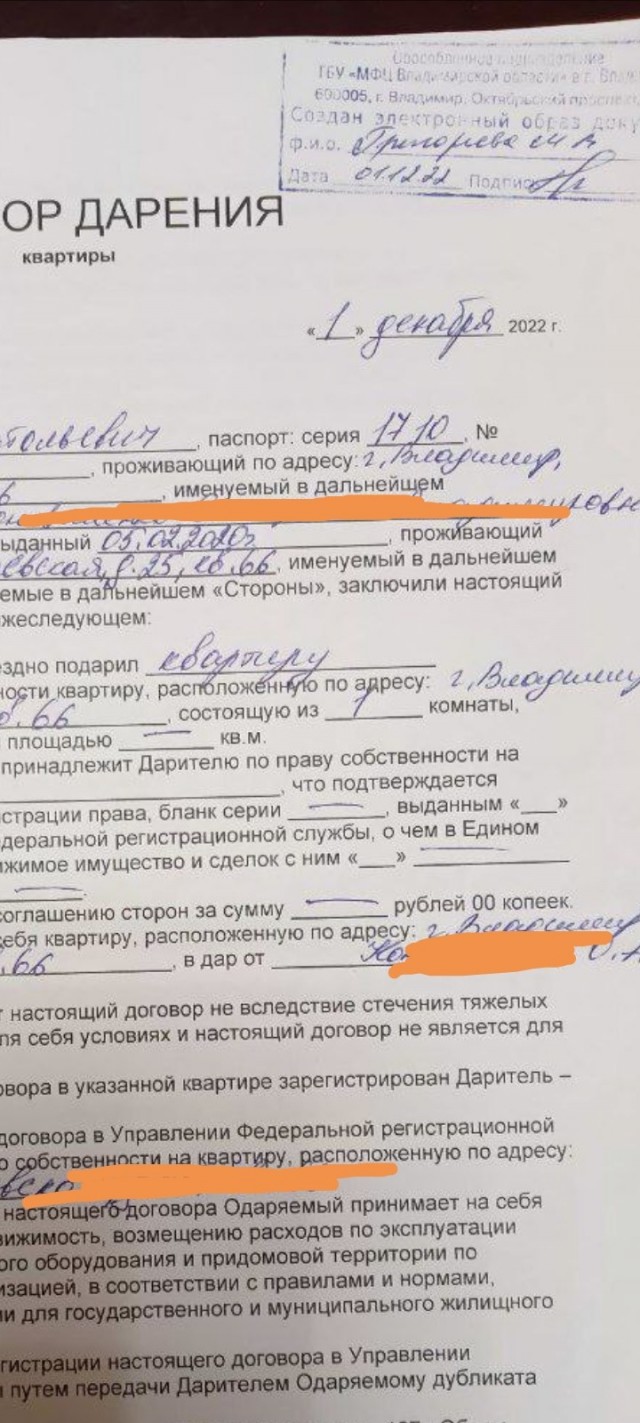 Обособленное подразделение
ГБУ «МФЦ Владимирской области» в г. Влад
600005, г. Владимир, Октябрьский проспект
Создан электронный образ доку
ф.и.о. Григорьева М А
Дата 01.12.22 Подпись
ОР ДАРЕНИЯ
квартиры
«1» декабря 2022 г.
тольевич, паспорт: серия 1710, №
, проживающий по адресу: г. Владимир,
, именуемый в дальнейшем
ыданный 05.02.2020г, проживающий
евская, д. 25, кв. 66, именуемый в дальнейшем
емые в дальнейшем «Стороны», заключили настоящий
жеследующем:
здно подарил квартиру
ности квартиру, расположенную по адресу: г. Владимир
66, состоящую из 1 комнаты,
площадью — кв.м.
принадлежит Дарителю по праву собственности на
, что подтверждается
страции права, бланк серии —, выданным «___»
едеральной регистрационной службы, о чем в Едином
ижимое имущество и сделок с ним «___» —
—
соглашению сторон за сумму — рублей 00 копеек.
ебя квартиру, расположенную по адресу: г. Владимир
66, в дар от Ко
т настоящий договор не вследствие стечения тяжелых
ля себя условиях и настоящий договор не является для
овора в указанной квартире зарегистрирован Даритель –
договора в Управлении Федеральной регистрационной
о собственности на квартиру, расположенную по адресу:
настоящего договора Одаряемый принимает на себя
вижимость, возмещению расходов по эксплуатации
ого оборудования и придомовой территории по
изацией, в соответствии с правилами и нормами,
ли для государственного и муниципального жилищного
гистрации настоящего договора в Управлении
и путем передачи Дарителем Одаряемому дубликата